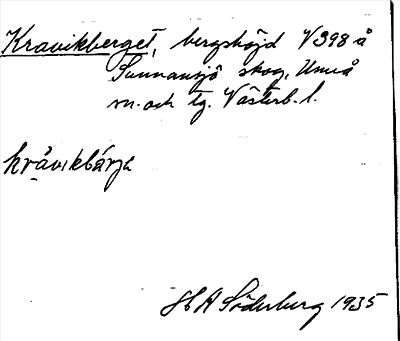 Kravikberget, bergshöjd V 398 å
Sunnansjö skog, Umeå
sn. och tg. Västerb. l.
kråvikbárjε
H A Söderberg 1935